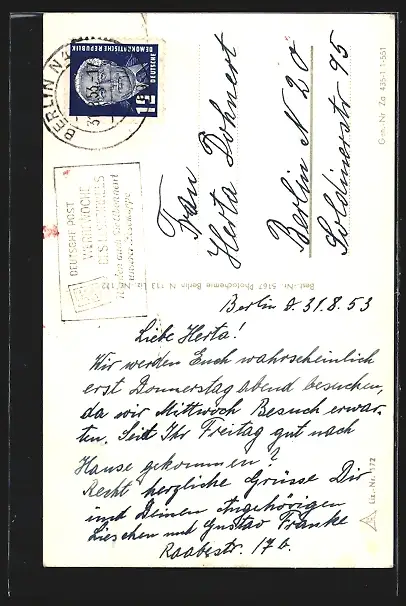 BERLIN N4
DEUTSCHE
DEMOKRATISCHE REPUBLIK
12
DEUTSCHE POST
WERBEWOCHE
DES LANDFUNKES
Frau
Herta Dohnert
Berlin N 20
Soldinerstr 95
Gen.-Nr. Za 435-1 1-551
Best.-Nr. 5167 Photochemie Berlin N 113 Liz.-Nr. 172
Berlin d. 31.8.53
Liebe Herta!
Wir werden Euch wahrscheinlich
erst Donnerstag abend besuchen,
da wir Mittwoch Besuch erwar-
ten. Seit Ihr Freitag gut nach
Hause gekommen?
Recht herzliche Grüsse Dir
und Deinen Angehörigen
Lieschen und Gustav Franke
Raabestr. 17b.
Liz.-Nr. 172